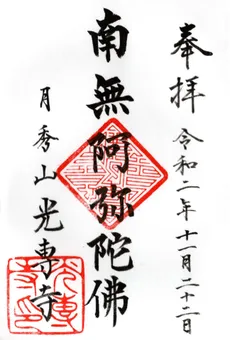 奉拝 令和二年十一月二十二日
南無阿弥陀佛
月秀山 光専寺